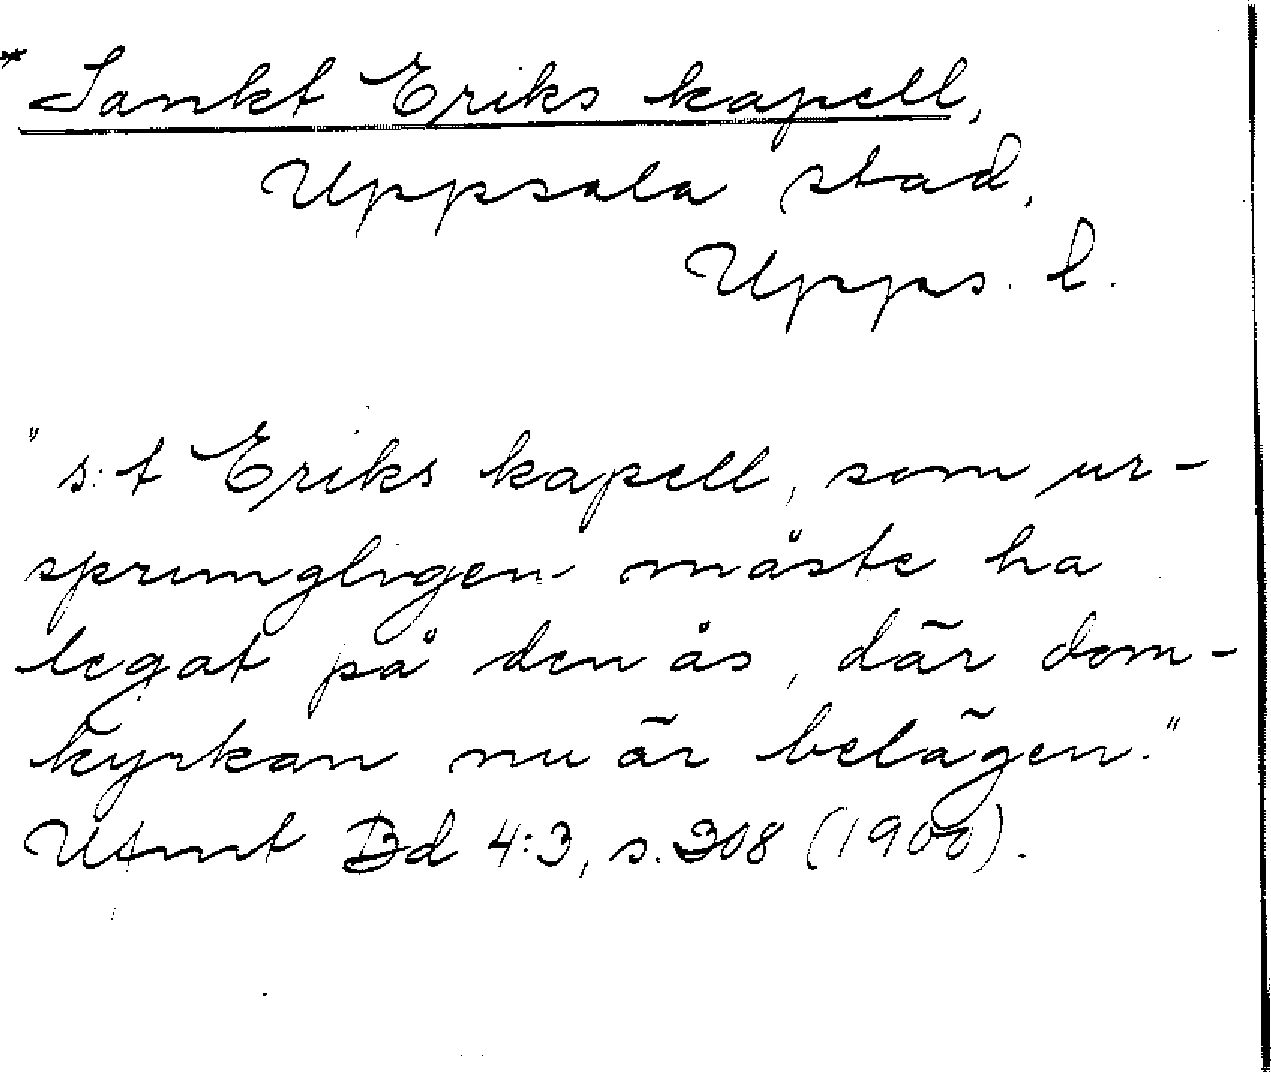 * Sankt Eriks kapell,
Uppsala stad,
Upps. l.
"s:t Eriks kapell, som ur-
sprungligen måste ha
legat på den ås, där dom-
kyrkan nu är belägen."
UFmT Bd 4:3, s. 308 (1900).